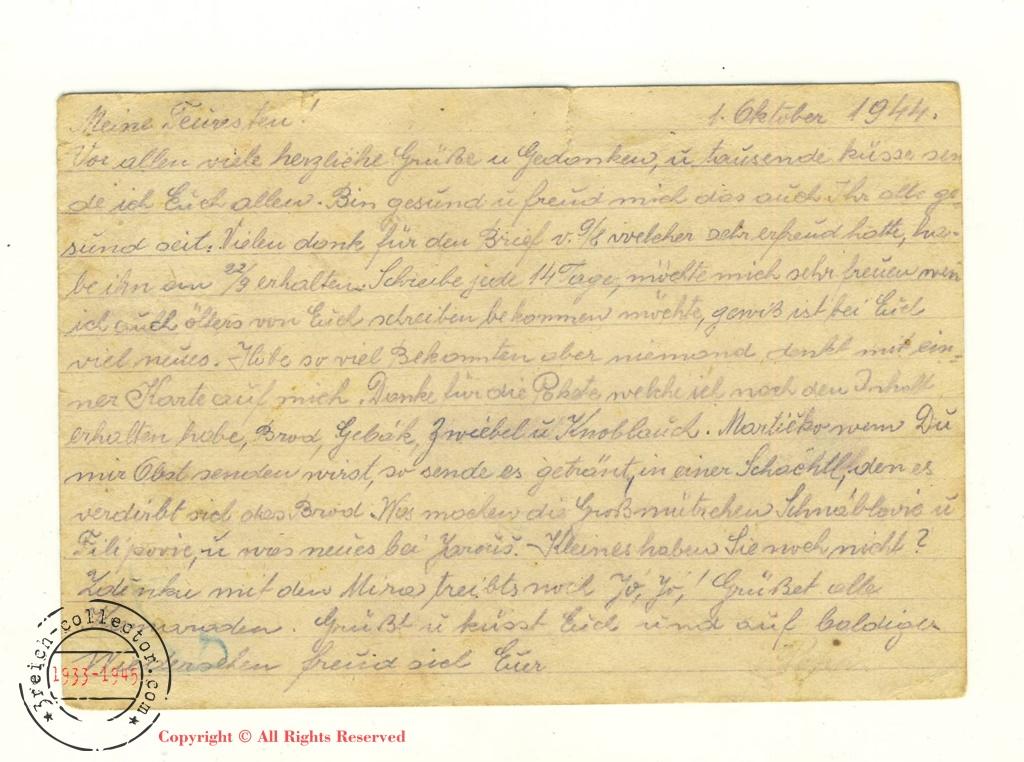 Meine Teuresten! 1. Oktober 1944.
Vor allen viele herzliche Grüße u Gedanken, u tausende küsse sen
de ich Euch allen. Bin gesund u freud mich das auch Ihr alle ge-
sund seit. Vielen dank für den Brief v. 9/8 welcher sehr erfreud hatte, ha-
be ihn am 22/9 erhalten. Schreibe jede 14 Tage, möchte mich sehr freuen wen
ich auch öfters von Euch schreiben bekommen möchte, gewiß ist bei Euch
viel neues. - Habe so viel Bekannten aber niemand denkt mit ein-
ner Karte auf mich. Danke für die Pakete welche ich nach den Inhalt
erhalten habe, Brod, Gebäk, Zwiebel u Knoblauch. Martičko wem Du
mir Obst senden wirst, so sende es getränt, in einer Schachtl, den es
verdirbt sich das Brod. Was machen die Großmütrchen Schnáblovic u
Filipovic, u was neues bei Jarouš. - Kleines haben Sie noch nicht?
Zdenku mit den Mira treibts noch Jó, Jó! Grüßet alle
maraden. Grüßt u küsst Euch und auf baldiger
Wiedersehen freud sich Euer
3reich-collector.com
1933-1945
Copyright © All Rights Reserved